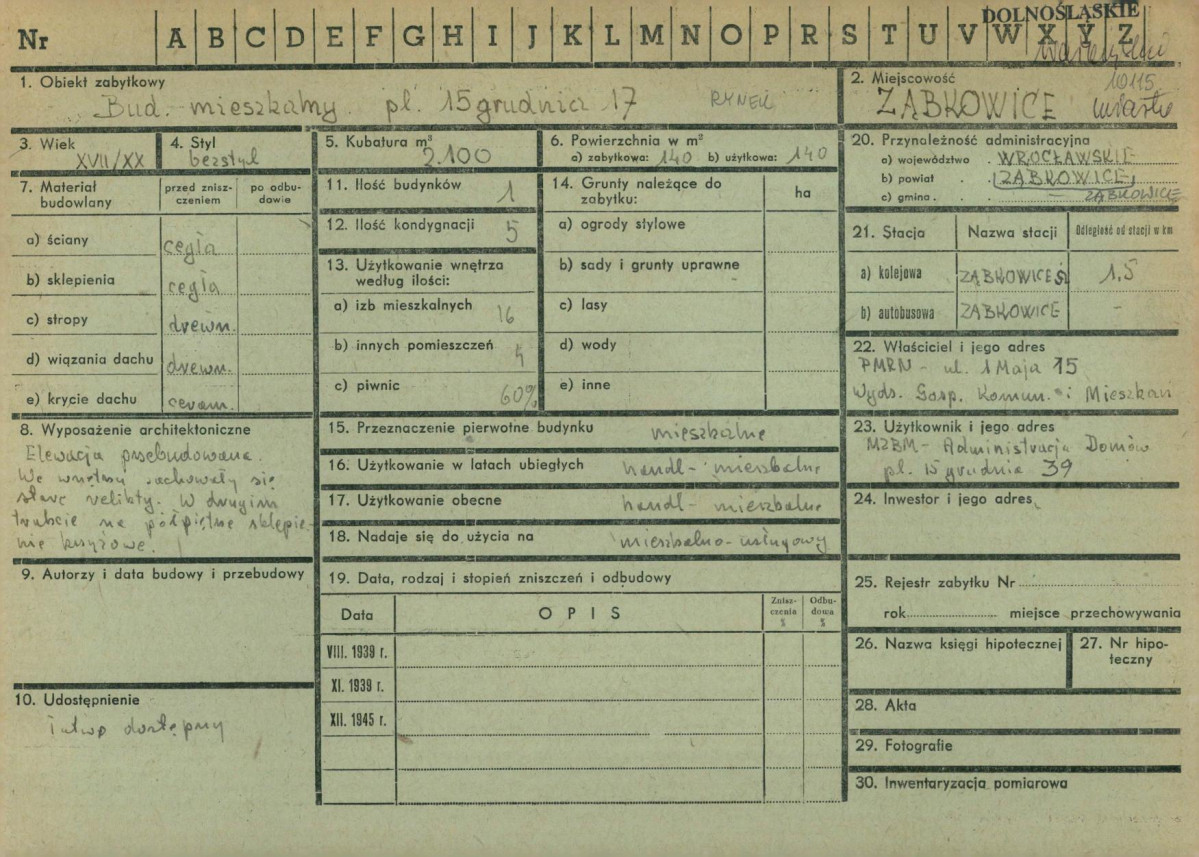 DOLNOŚLĄSKIE
Nr A B C D E F G H I J K L M N O P R S T U V W X Y Z
1. Obiekt zabytkowy
Bud. mieszkalny pl. 15 grudnia 17 RYNEK
2. Miejscowość
10115
ZĄBKOWICE miasto
3. Wiek
XVII/XX
4. Styl
bezstyl
5. Kubatura m³
2.100
6. Powierzchnia w m²
a) zabytkowa: 140 b) użytkowa: 140
20. Przynależność administracyjna
a) województwo WROCŁAWSKIE
b) powiat ZĄBKOWICE
c) gmina — ZĄBKOWICE
7. Materiał budowlany
przed znisz-czeniem
po odbu-dowie
a) ściany cegła
b) sklepienia cegła
c) stropy drewn.
d) wiązania dachu drewn.
e) krycie dachu ceram.
11. Ilość budynków 1
12. Ilość kondygnacji 5
13. Użytkowanie wnętrza według ilości:
a) izb mieszkalnych 16
b) innych pomieszczeń 4
c) piwnic 60%
14. Grunty należące do zabytku:
ha
a) ogrody stylowe
b) sady i grunty uprawne
c) lasy
d) wody
e) inne
21. Stacja Nazwa stacji Odległość od stacji w km
a) kolejowa ZĄBKOWICE Śl 1,5
b) autobusowa ZĄBKOWICE —
22. Właściciel i jego adres
PMRN - ul. 1 Maja 15
Wydz. Gosp. Komun. i Mieszkan
8. Wyposażenie architektoniczne
Elewacja przebudowana.
We wnętrzu zachowały się
stare relikty. W drugim
trakcie na półpiętrze sklepie-
nie krzyżowe.
15. Przeznaczenie pierwotne budynku mieszkalne
16. Użytkowanie w latach ubiegłych handl - mieszkalne
17. Użytkowanie obecne handl - mieszkalne
18. Nadaje się do użycia na mieszkalno-usługowy
23. Użytkownik i jego adres
MZBM - Administracja Domów
pl. 15 grudnia 39
24. Inwestor i jego adres
9. Autorzy i data budowy i przebudowy
19. Data, rodzaj i stopień zniszczeń i odbudowy
Data OPIS Znisz-czenia % Odbu-dowa %
VIII. 1939 r.
XI. 1939 r.
XII. 1945 r.
25. Rejestr zabytku Nr
rok miejsce przechowywania
26. Nazwa księgi hipotecznej
27. Nr hipo-teczny
10. Udostępnienie
łatwo dostępny
28. Akta
29. Fotografie
30. Inwentaryzacja pomiarowa